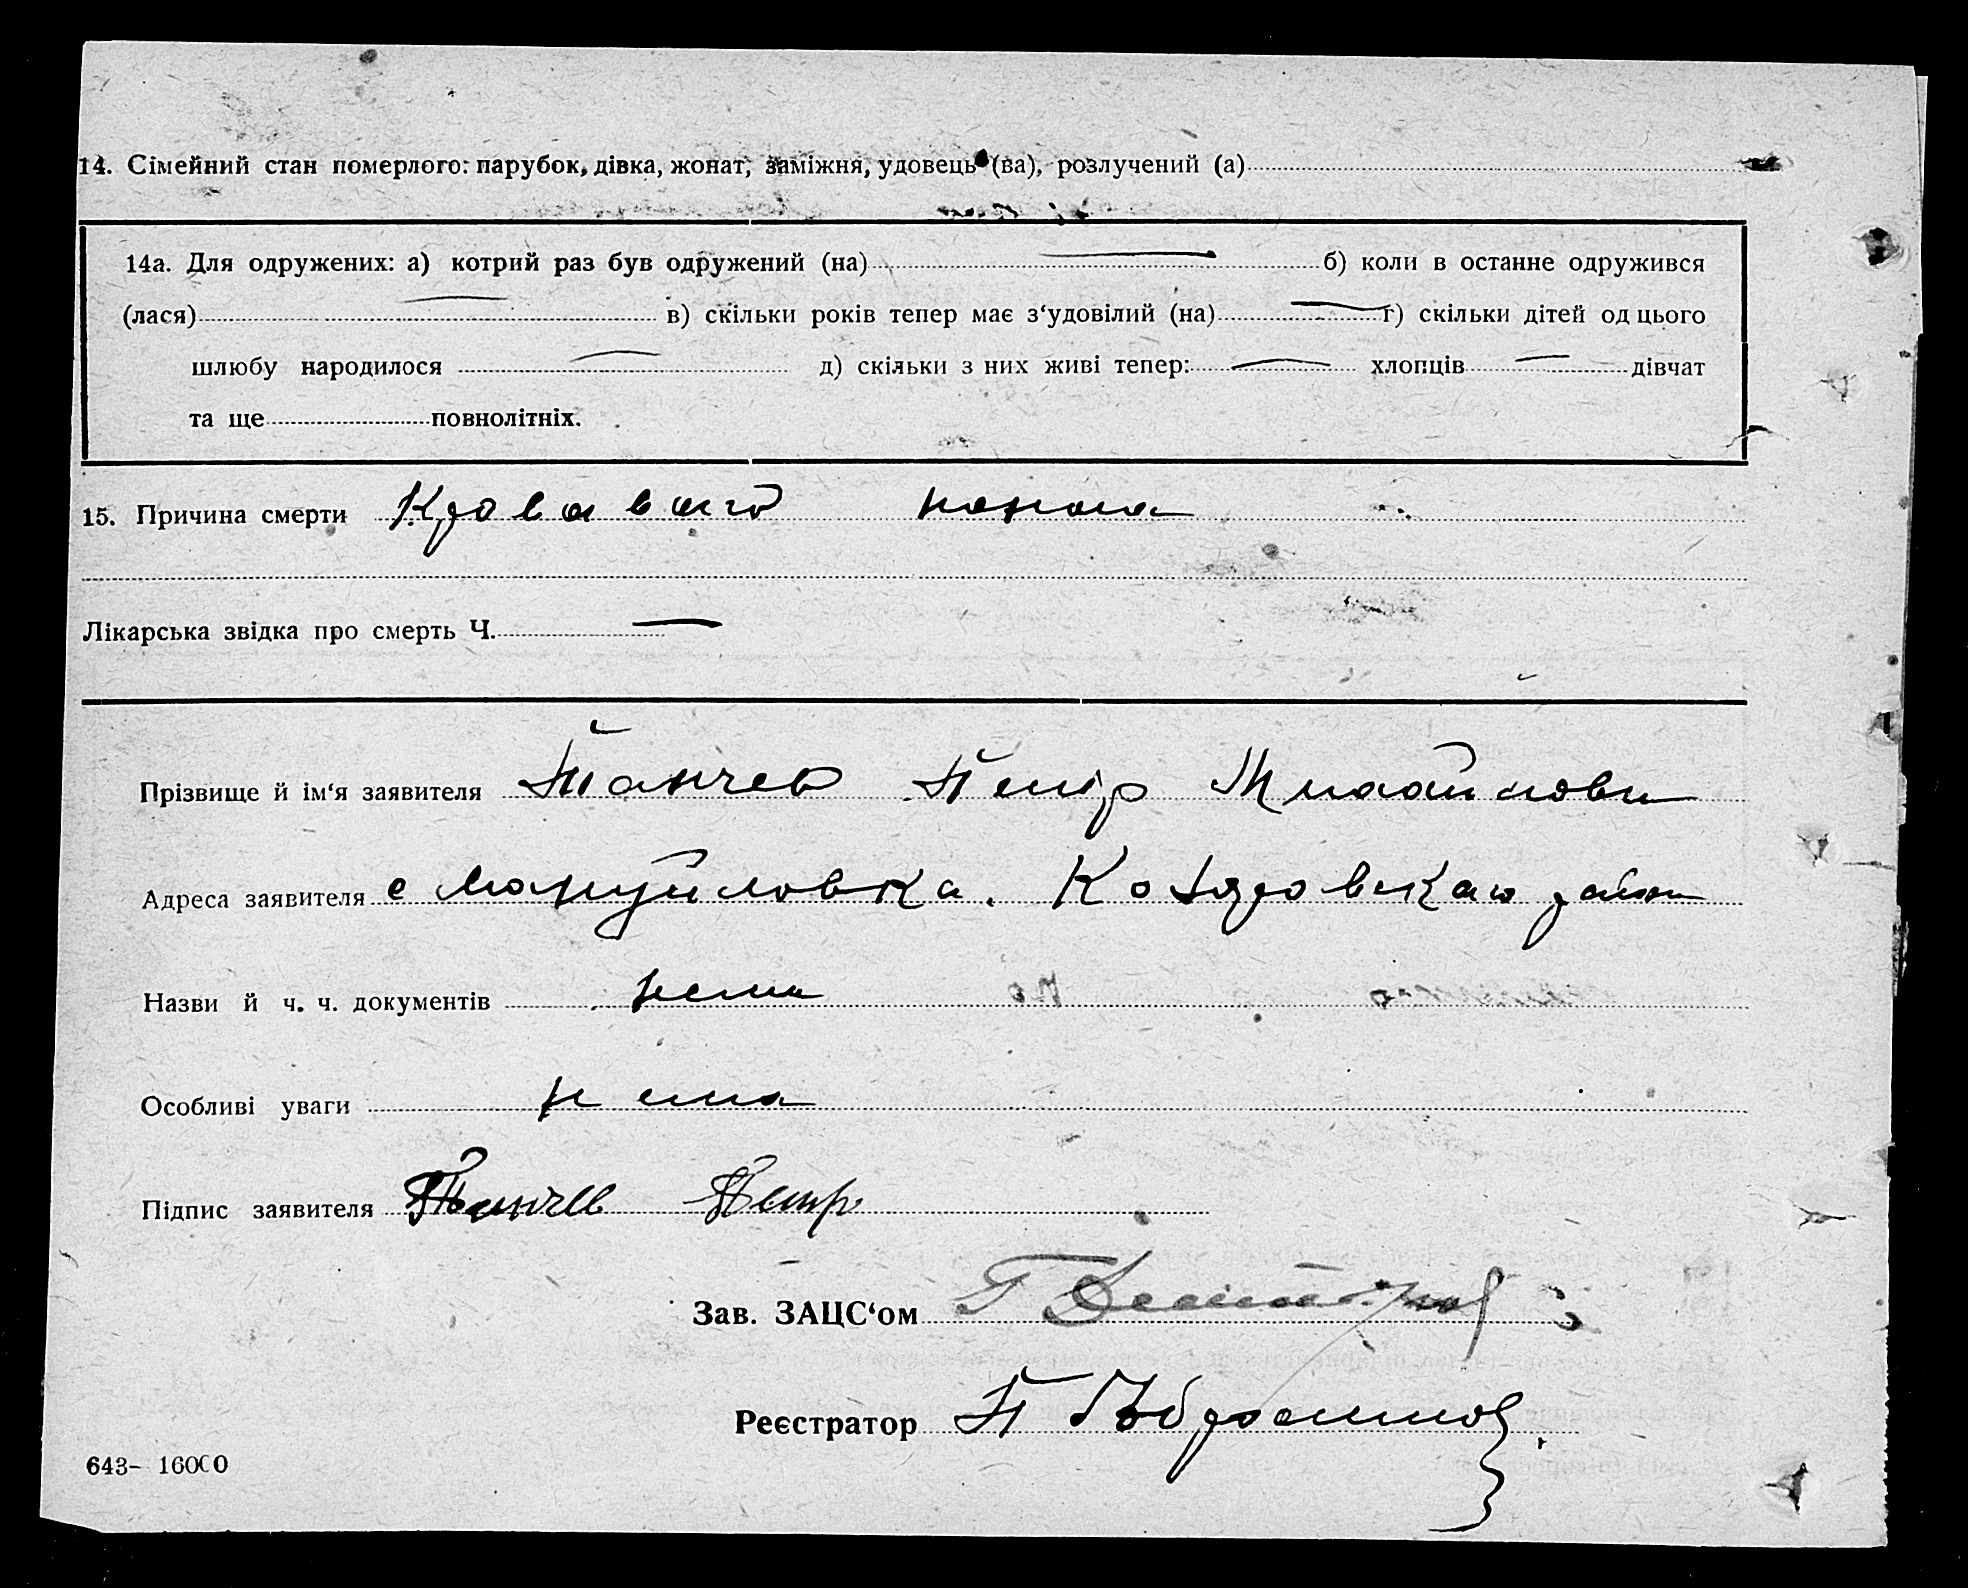 14. Сімейний стан померлого: парубок, дівка, жонат, заміжня, удовець (ва), розлучений (а)
14а. Для одружених: а) котрий раз був одружений (на) — б) коли в останне одружився
(лася) — в) скільки років тепер має з‘удовілий (на) — г) скільки дітей од цього
шлюбу народилося — д) скільки з них живі тепер: — хлопців — дівчат
та ще повнолітніх.
15. Причина смерти Кровавого поноса
Лікарська звідка про смерть Ч. —
Прізвище й ім‘я заявителя Танчев Петр
Адреса заявителя с Мануйловка.
Назви й ч. ч. документів нема
Особливі уваги нема
Підпис заявителя Танчев Петр
Зав. ЗАЦС‘ом
Реєстратор
643– 16000